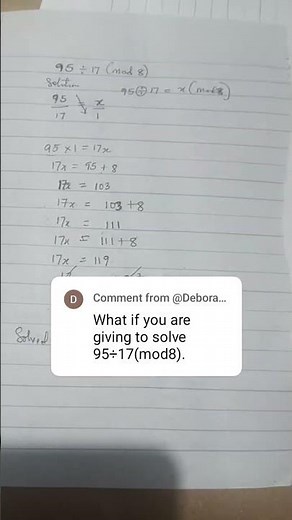 95 ÷ 17 (mod 8)
Solution
95 ÷ 17 = x (mod 8)
95 x
17 1
95 × 1 = 17x
17x = 95 + 8
17x = 103
17x = 103 + 8
17x = 111
17x = 111 + 8
17x = 119
D Comment from @Debora...
What if you are
giving to solve
95÷17(mod8).
Solved